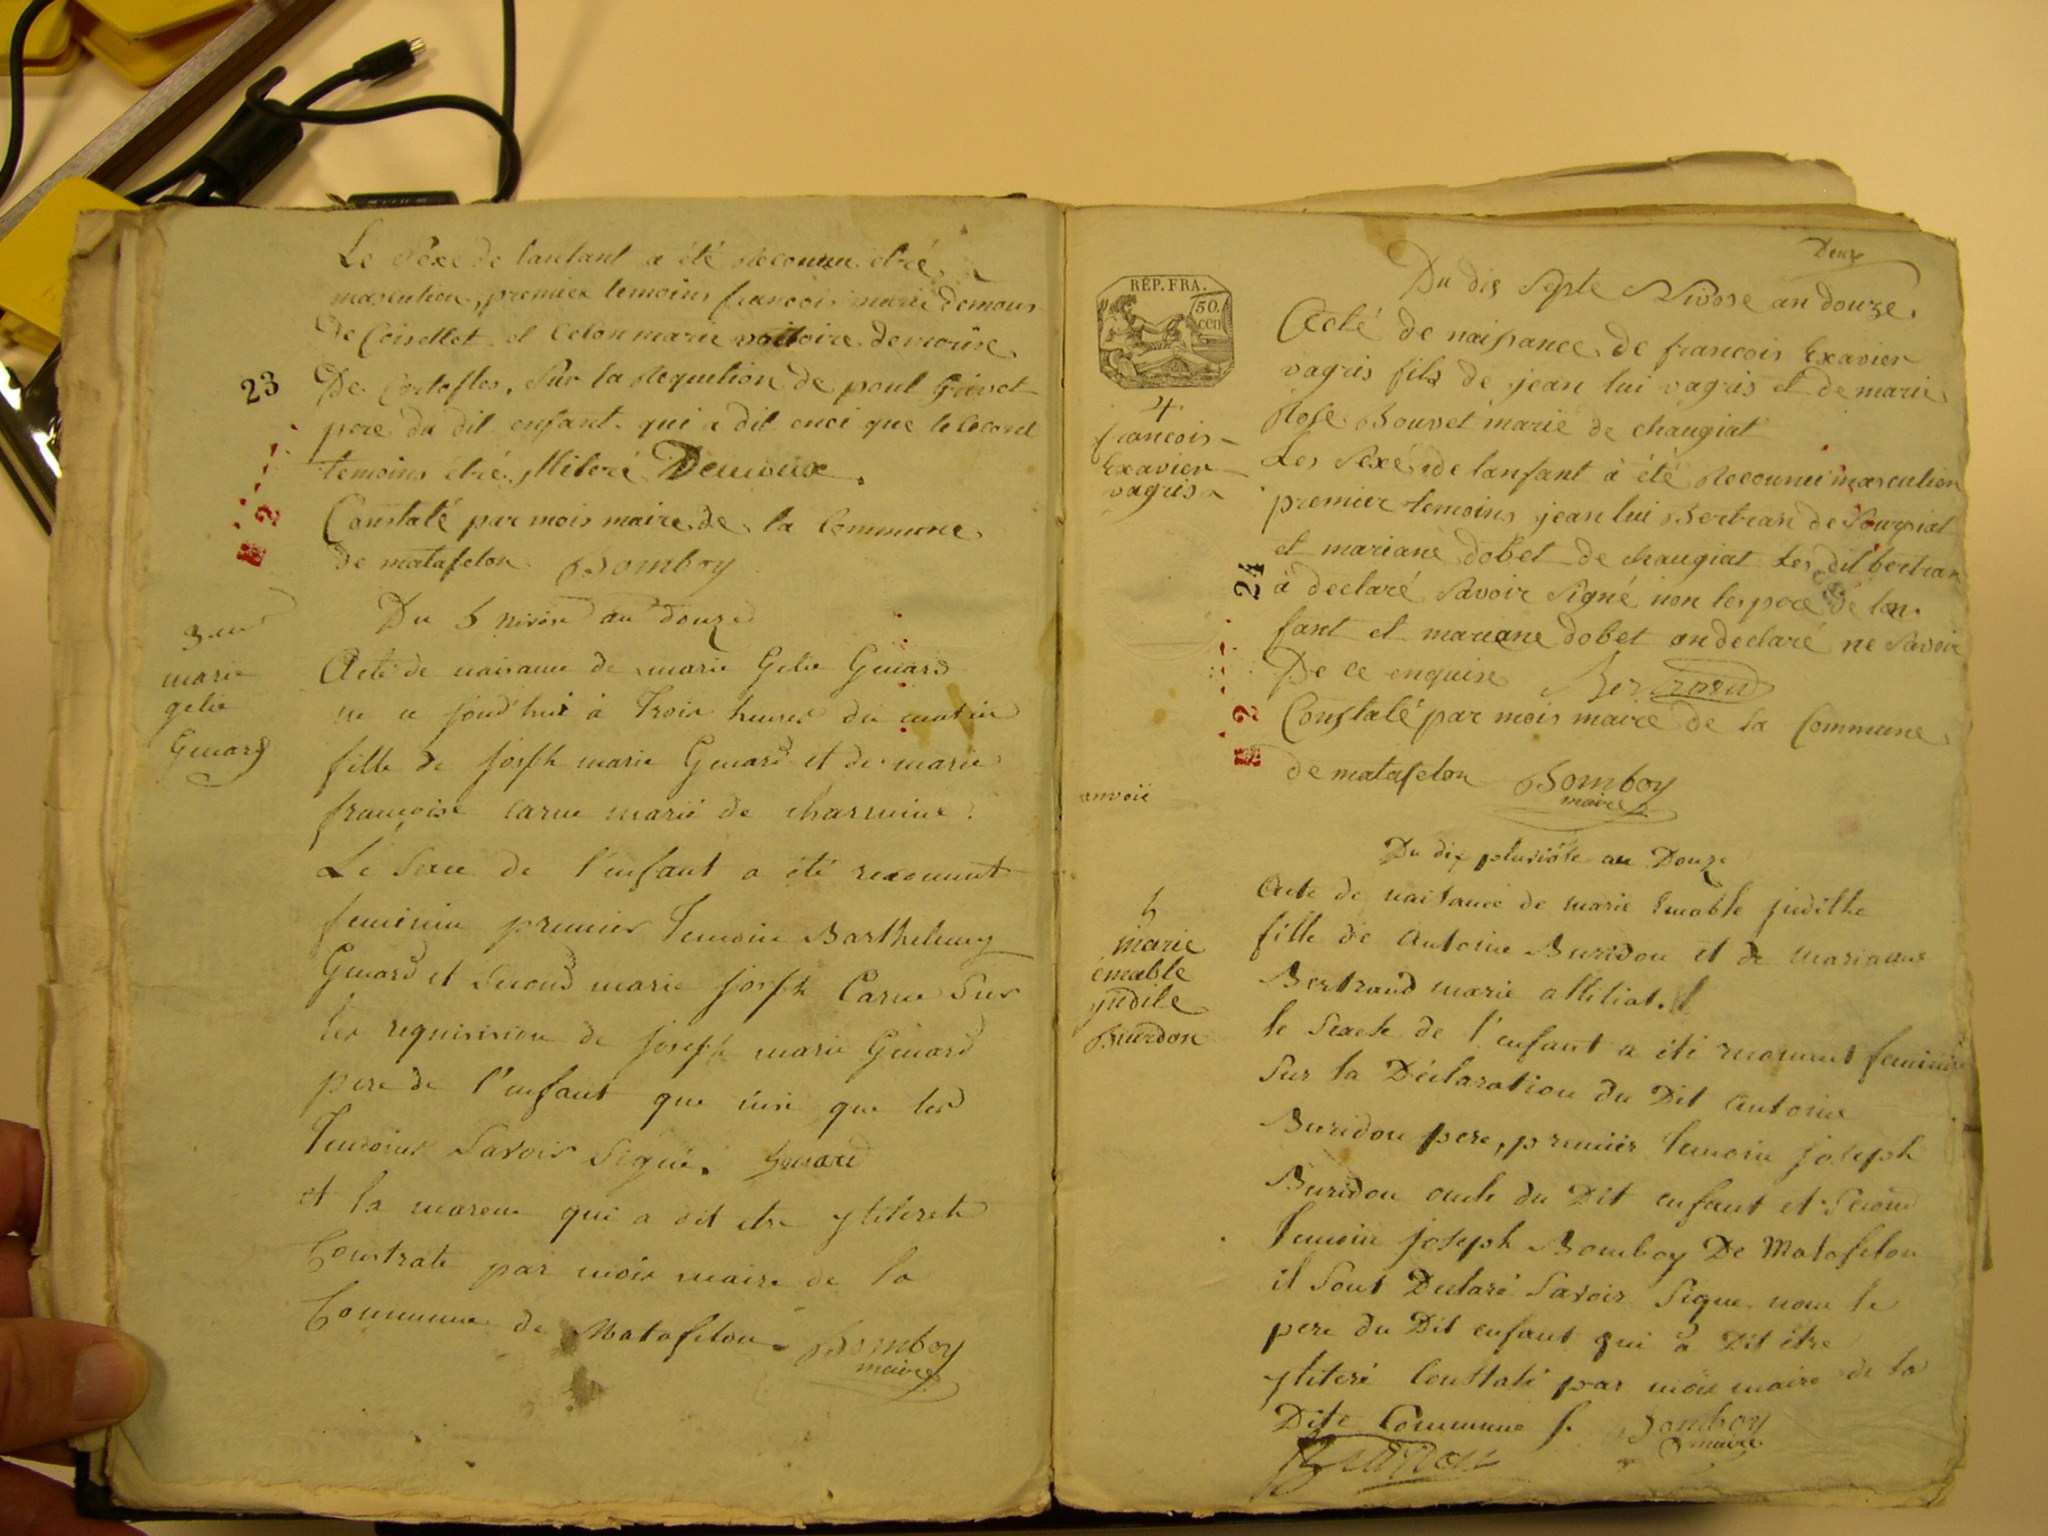 Le Sexe de lanfant a été Reconnu etré
masculien, premier temoins francois marie
de Coisellet et
De Sur la Requition de poul
23
pere du dit enfant qui a dit enci que le Cecont
temoins etré jlliteré
Constaté par mois maire de la Commune
de matafelon Bomboy
Du 5 nivose an douze
3
marie
gelie
Guiard
Acte de naisance de marie Gelie Guiard
ne ce jourd'hui à Trois heures du matin
fille de joseph marie Guiard et de marie
francoise Carne marié de charmine
Le Sexe de l'enfant a été reconnut
feminin premier Temoin Barthelemy
Guiard et Second marie joseph Carne Sur
les requisision de joseph marie Guiard
pere de l'enfant que insi que les
Temoins Savoir Signé. Guiard
et la marene qui a dit etre ylitereté
Constate par mois maire de la
Commune de Matafelon Bomboy
maire
Douze
Du dis Septe Nivose an douze.
RÉP. FRA.
50.
cen
4
francois
Exavier
vagris
Acté de naisance de francois Exavier
vagris fils de jean lui vagris et de marie
Rose Bouvet marie de chaugiat
Les Sexé de lanfant à été Reconnu masculien
premier temoins jean lui Bertran de
et mariane dobet de chaugiat Les dit bertran
24
à declaré Savoir Signé non les pere de lan
fant et mariane dobet on declaré ne Savoir
De ce enquise Bertrand
Constalé par mois maire de la Commune
de matafelon Bomboy
maire
anvoié
Du dix pluviôse an Douze
5
marie
émable
judite
Burdon
Acte de naisance de marie Emable judithe
fille de Antoine Buridon et de mariane
Bertrand marie
le Sexele de l'enfant a été reconnut feminin
Sur la Déclaration du Dit Antoine
Buridon pere, premier Temoin joseph
Buridon oncle du Dit enfant et Second
Temoin joseph Bomboy De Matafelon
il Sont Declaré Savoir Signe non le
pere du Dit enfant qui a Dit être
yliteré Constaté par mois maire de la
Dite Commune f. Bomboy
maire